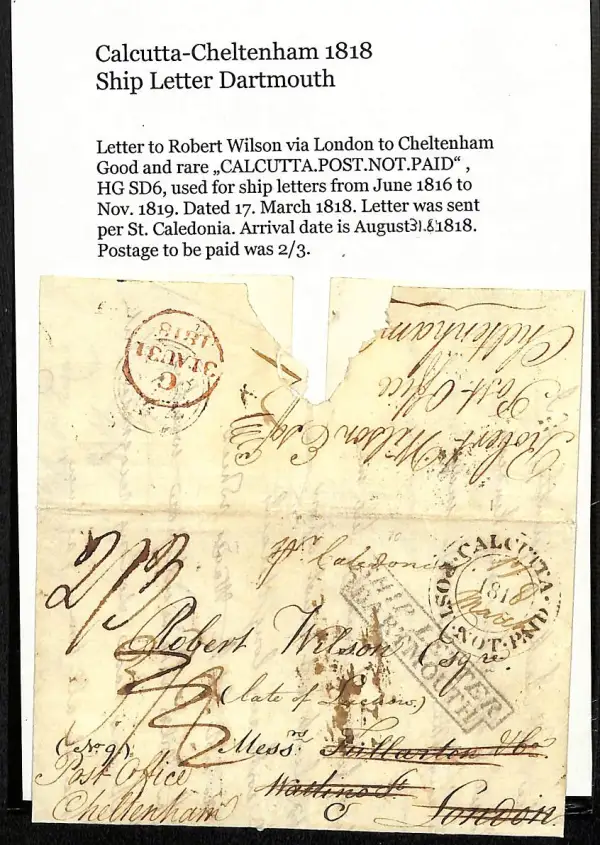 Calcutta-Cheltenham 1818
Ship Letter Dartmouth
Letter to Robert Wilson via London to Cheltenham
Good and rare „CALCUTTA.POST.NOT.PAID“ ,
HG SD6, used for ship letters from June 1816 to
Nov. 1819. Dated 17. March 1818. Letter was sent
per St. Caledonia. Arrival date is August 31.8.1818.
Postage to be paid was 2/3.
C
31 AU 31
1818
Robert Wilson Esqr
Post Office
Cheltenham
Caledonia
CALCUTTA
POST
NOT.PAID
1818
March
SHIP LETTER
DARTMOUTH
Robert Wilson Esqre
(late of
Messrs Fullarton & Co
(No 9)
Post Office
Watling St
Cheltenham
London